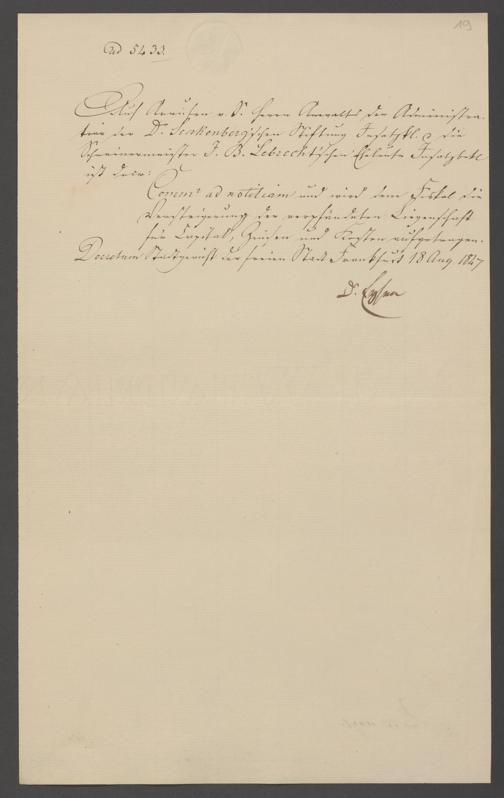 19
ad 5433.
Auf Anrufen v. S. Herrn Anwalts der Administra-
tion der Dr. Senkenberg'schen Stiftung Insatzkl. c. die
Schreinermeister J. B. Lebrecht'schen Eheleute Insatzbekl.
ist decr:
Comm: ad notitiam und wird dem Fiskal die
Versteigerung der verpfändeten Liegenschaft
für Capital, Zinsen und Kosten aufgetragen.
Decretum Stadtgericht der freien Stadt Frankfurt 18 Aug. 1847
Dr.